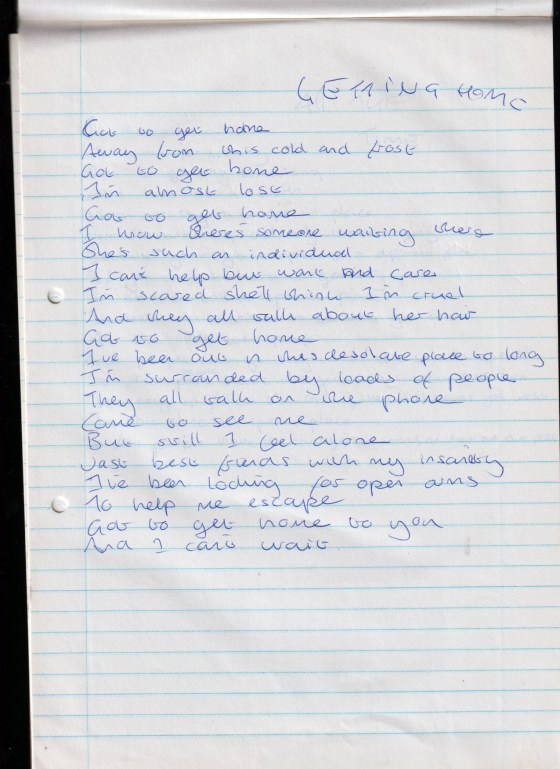 GETTING HOME
Got to get home
Away from this cold and frost
Got to get home
I'm almost lost
Got to get home
I know there's someone waiting there
She's such an individual
I can't help but want and care
I'm scared she'll think I'm cruel
And they all talk about her hair
Got to get home
I've been out in this desolate place to long
I'm surranded by loads of people
They all talk on the phone
Come to see me
But still I feel alone
Just best freinds with my insanity
I've been looking for open arms
To help me escape
Got to get home to you
And I can't wait